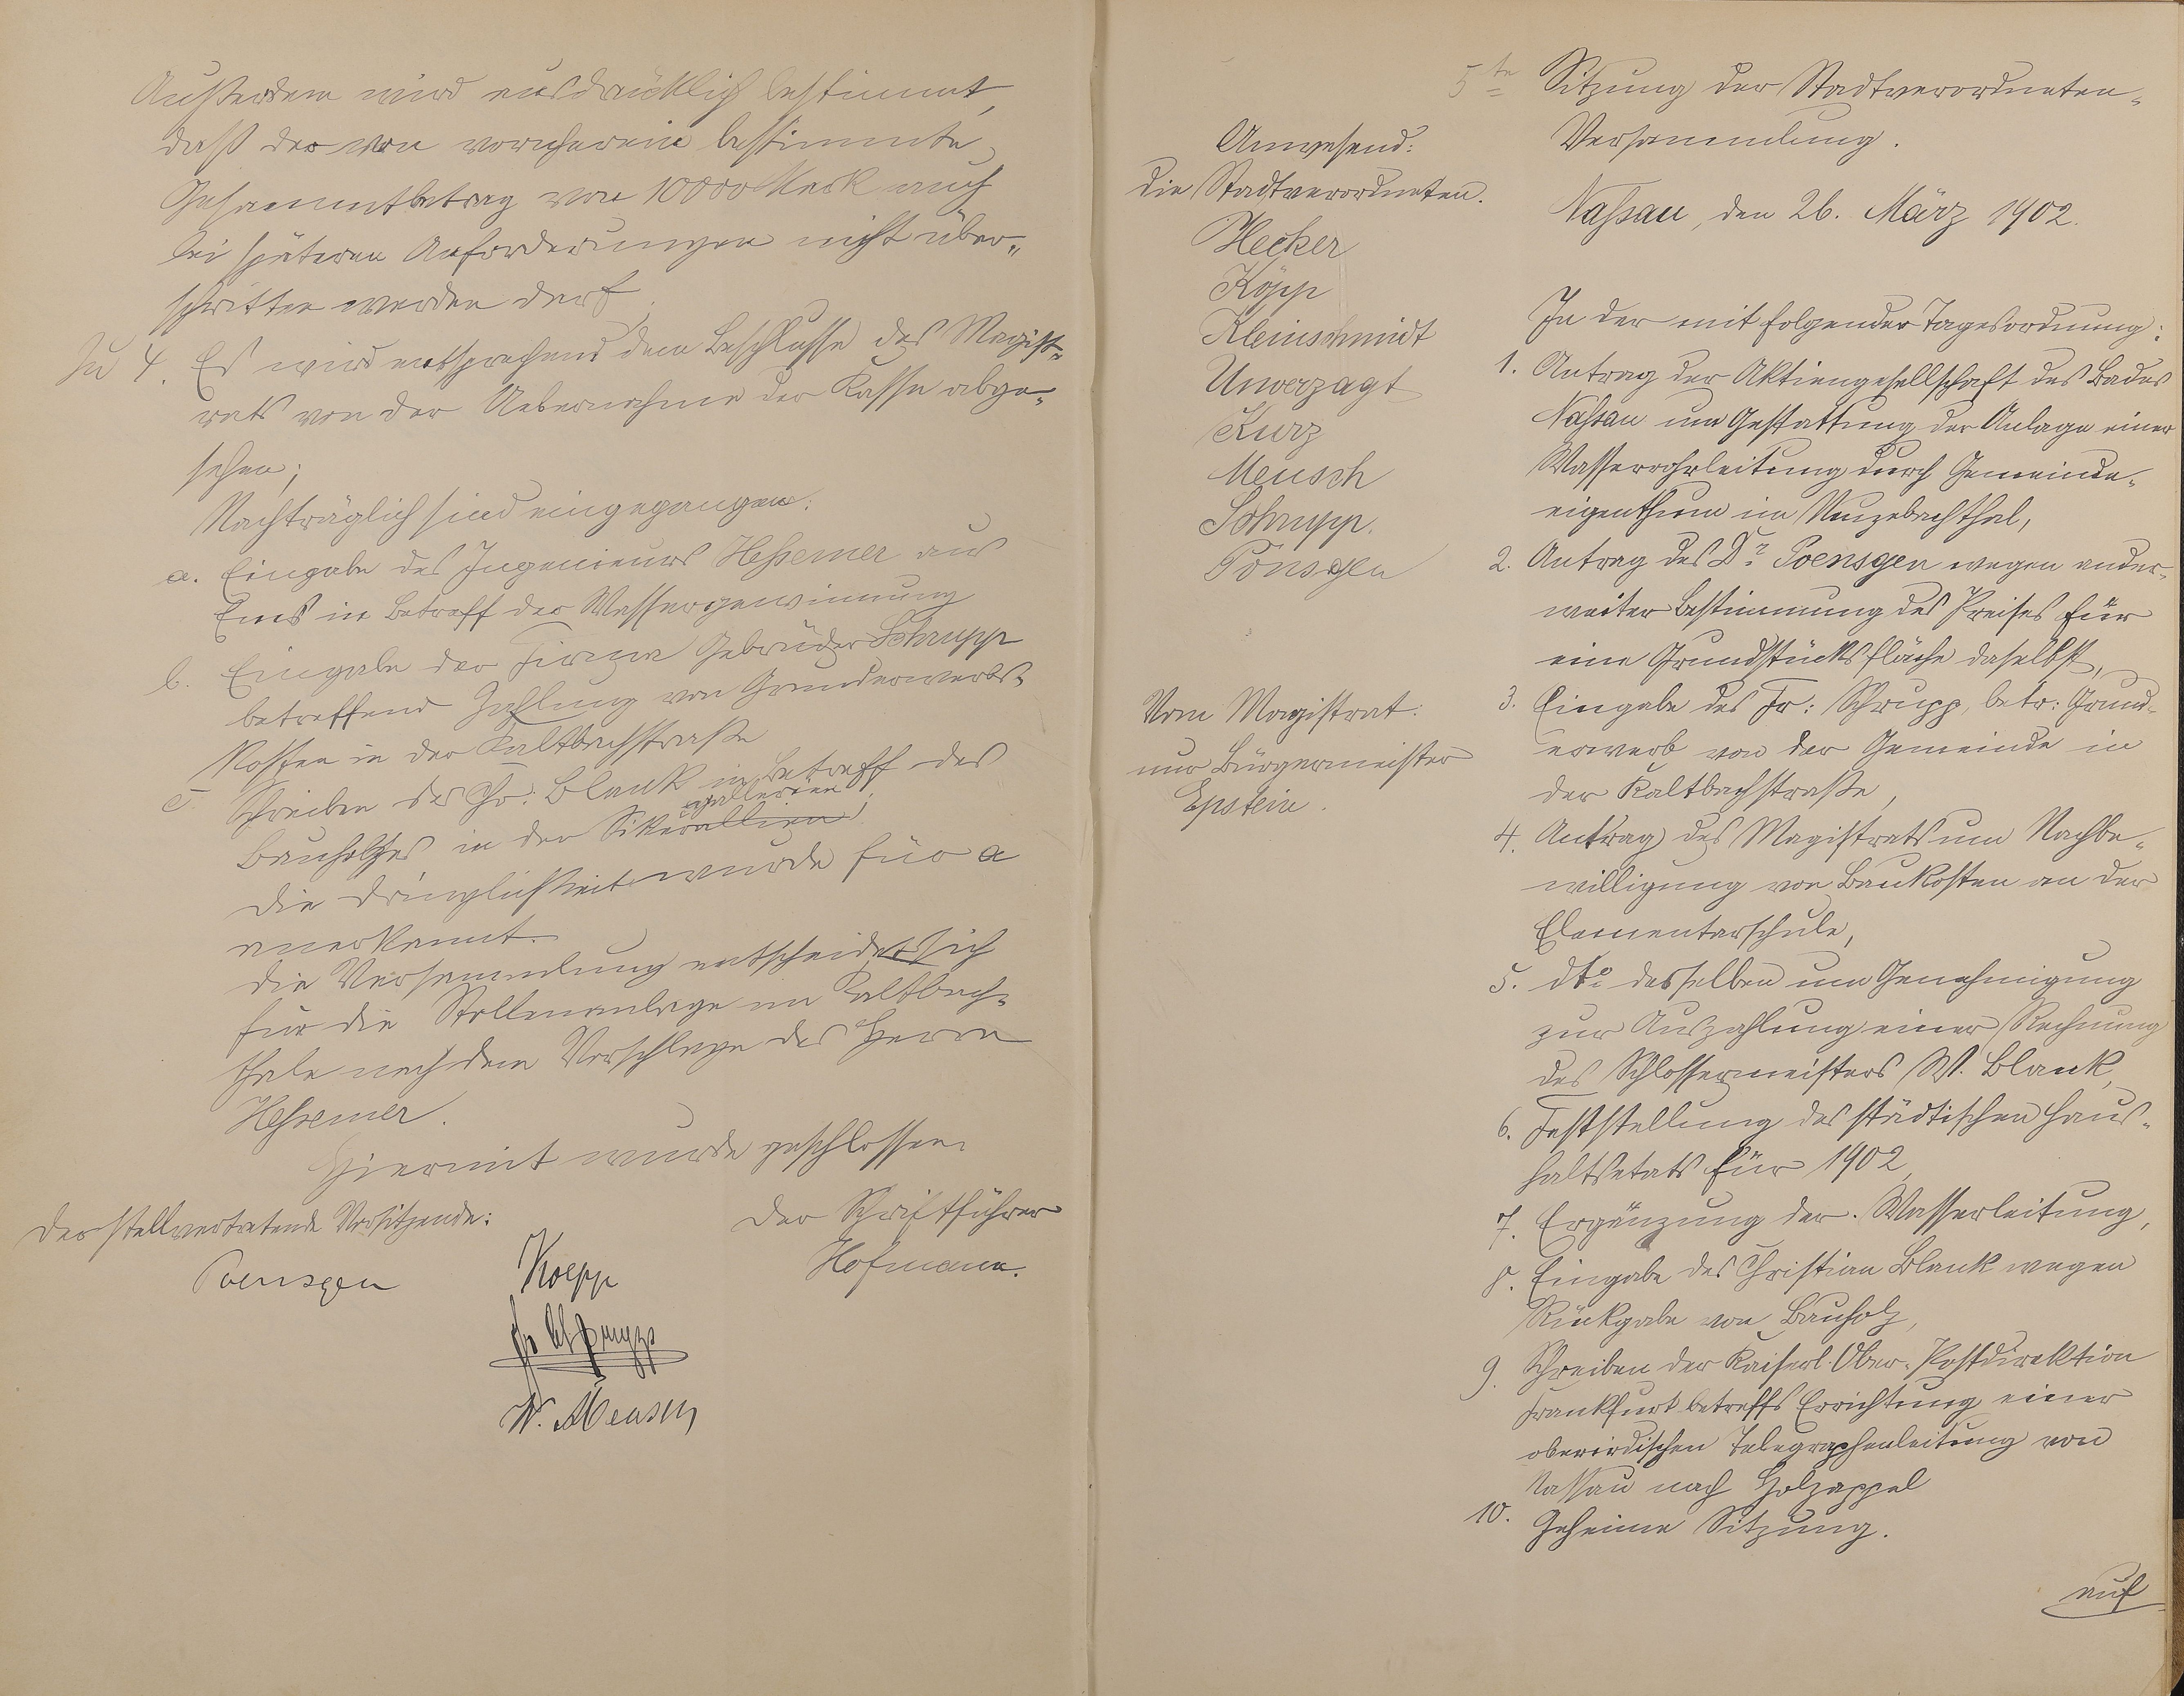 Außerdem wird ausdrücklich bestimmt,
daß der von vornherein bestimmte
Gesammtbetrag von 10000 Mark auch
bei späteren Anforderungen nicht über„
schritten werden darf.
Zu 4. Es wird entsprechend dem Beschlusse des Magist„
rats von der Uebernahme der Kasse abge„
sehen;
Nachträglich sind eingegangen:
a. Eingabe des Ingenieurs Heßemer aus
Ems in Betreff der Wassergewinnung
b. Eingabe der Firma Gebrüder Schrupp
betreffend Zahlung von Grunderwerbs„
kosten in der Kaltbachstraße
c. Schreiben des Chr. Blank in Betreff des
gallerieen
Bauholzes in der Sikerallien;
Die Dringlichkeit wurde für a
anerkannt.
Die Versammlung entscheidet sich
für die Stollenanlage im Kaltbach„
thale nach dem Vorschlage des Herrn
Heßemer.
Hiermit wurde geschlossen
Der stellvertretende Vorsitzende:
Der Schriftführer
Poensgen
Koepp
Hofmann.
Fr Schrupp
W. Meusch
5te Sitzung der Stadtverordneten„
Versammlung.
Anwesend:
die Stadtverordneten.
Hecker
Köpp
Kleinschmidt
Unverzagt
Kurz
Meusch
Schrupp.
Pönsgen
Vom Magistrat:
nur Bürgermeister
Epstein.
Naßau, den 26. März 1902.
In der mit folgender Tagesordnung:
1. Antrag der Aktiengesellschaft des Bades
Naßau um Gestattung der Anlage einer
Wasserrohrleitung durch Gemeinde„
eigenthum im Neuzebachthal,
2. Antrag des Dr. Poensgen wegen ander„
weiter Bestimmung des Preises für
eine Grundstücksfläche daselbst,
3. Eingabe des Fr: Schrupp, betr: Grund„
erwerb von der Gemeinde in
der Kaltbachstraße,
4. Antrag des Magistrats um Nachbe„
willigung von Baukosten an der
Elementarschule,
5. dto desselben um Genehmigung
zur Auszahlung einer Rechnung
des Schlossermeisters W. Blank,
6. Feststellung des städtischen Haus„
haltsetats für 1902,
7. Ergänzung der Wasserleitung,
8. Eingabe des Christian Blank wegen
Rückgabe von Bauholz,
9. Schreiben der Kaiserl. Ober-Postdirektion
Frankfurt betreffs Errichtung einer
oberirdischen Telegraphenleitung von
Nassau nach Holzappel
10. Geheime Sitzung.
auf